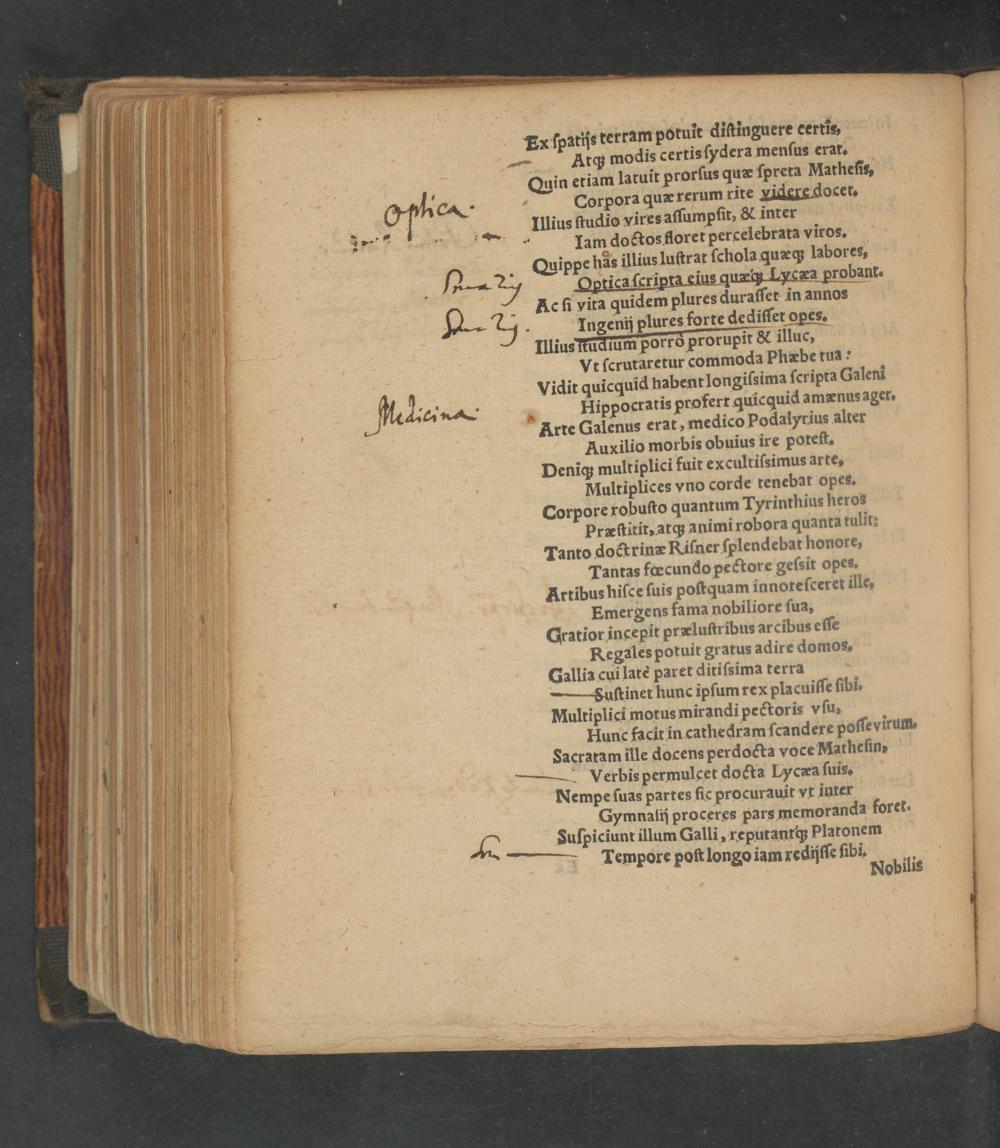 Ex spatijs terram potuit distinguere certis,
Atq; modis certis sydera mensus erat.
Quin etiam latuit prorsus quæ spreta Mathesis,
Corpora quæ rerum rite videre docet.
Optica.
Illius studio vires assumpsit, & inter
Iam doctos floret percelebrata viros.
Quippe has illius lustrat schola quæq; labores,
Optica scripta eius quæq; Lycæa probant.
Ac si vita quidem plures durasset in annos
Ingenij plures forte dedisset opes.
Illius studium porrò prorupit & illuc,
Vt scrutaretur commoda Phœbe tua:
Vidit quicquid habent longissima scripta Galeni
Hippocratis profert quicquid amænus ager.
Medicina.
Arte Galenus erat, medico Podalyrius alter
Auxilio morbis obuius ire potest.
Deniq; multiplici fuit excultissimus arte,
Multiplices vno corde tenebat opes.
Corpore robusto quantum Tyrinthius heros
Præstitit, atq; animi robora quanta tulit:
Tanto doctrinæ Risner splendebat honore,
Tantas fœcundo pectore gessit opes.
Artibus hisce suis postquam innotesceret ille,
Emergens fama nobiliore sua,
Gratior incepit prælustribus arcibus esse
Regales potuit gratus adire domos.
Gallia cui latè paret ditissima terra
Sustinet hunc ipsum rex placuisse sibi.
Multiplici motus mirandi pectoris vsu,
Hunc facit in cathedram scandere posse virum.
Sacratam ille docens perdocta voce Mathesin,
Verbis permulcet docta Lycæa suis.
Nempe suas partes sic procurauit vt inter
Gymnasij proceres pars memoranda foret.
Suspiciunt illum Galli, reputantq; Platonem
Tempore post longo iam redijsse sibi.
Nobilis